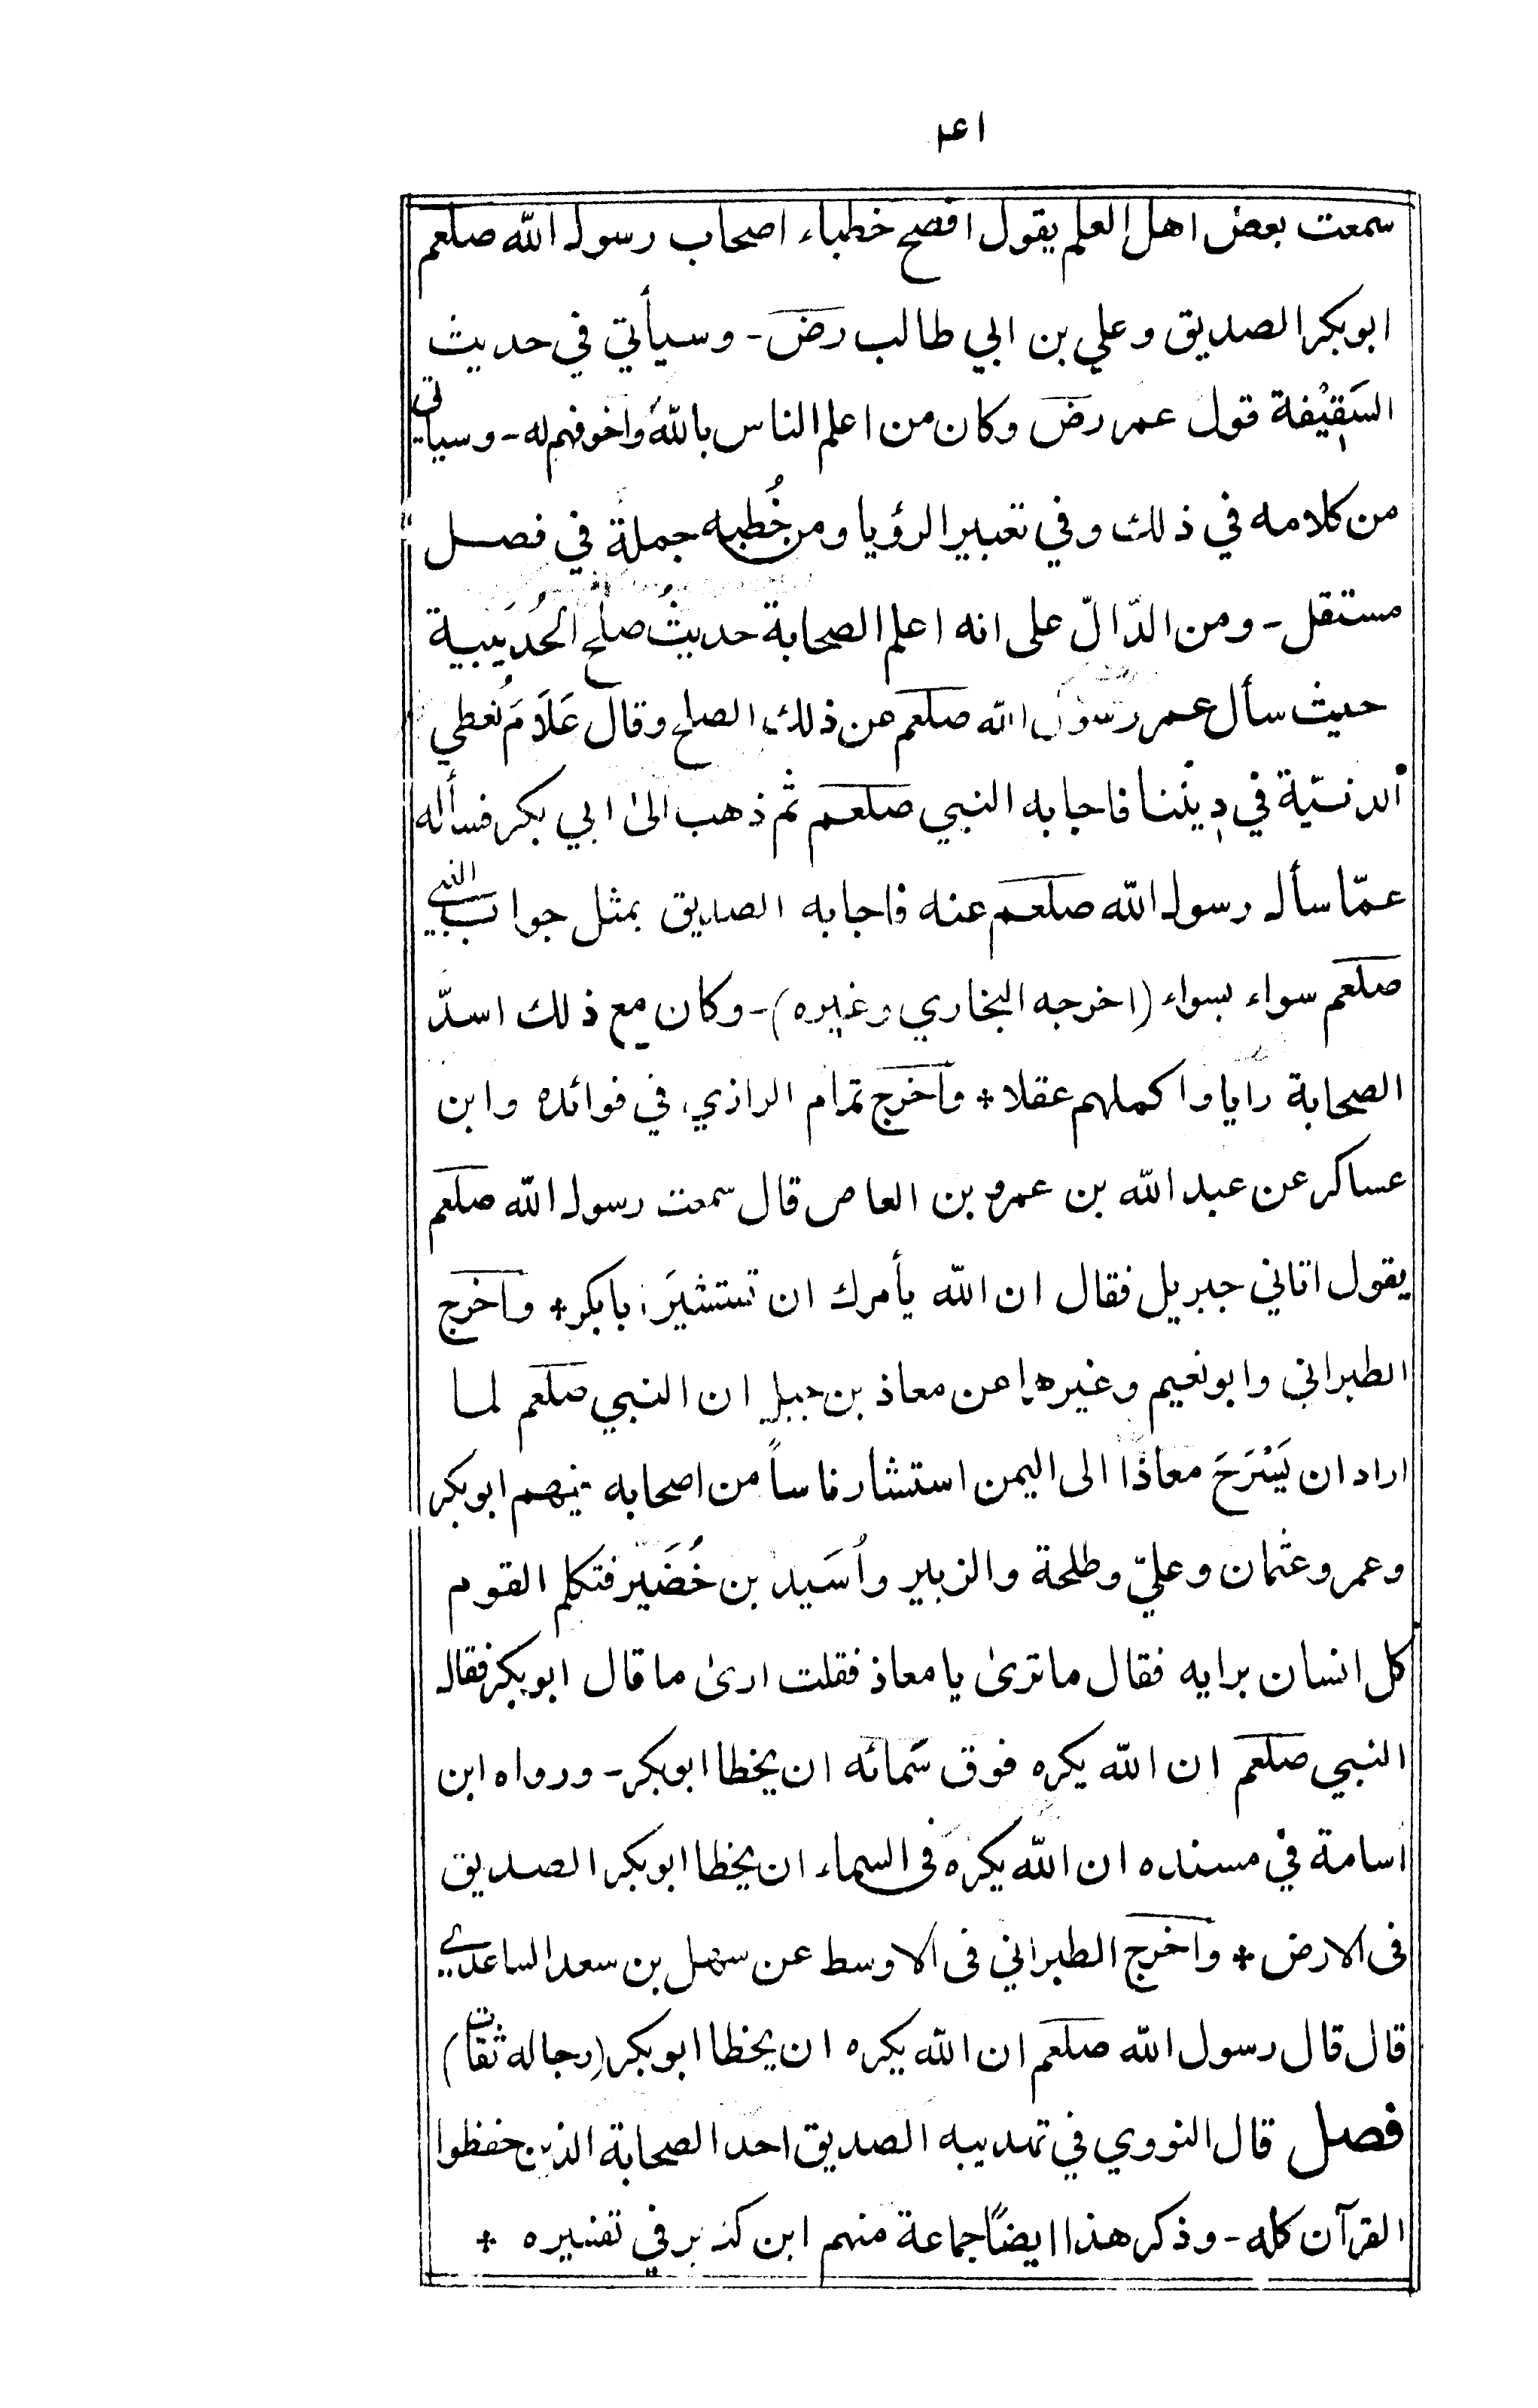 ٤١
سمعت بعض اهل العلم يقول افصح خطباء اصحاب رسول الله صلعم
ابوبكر الصديق وعلي بن ابي طالب رضـ - وسيأتي في حديث
السَقِيْفة قول عمر رضـ وكان من اعلم الناس بالله واخوفهم له - وسياتي
من كلامه في ذلك وفي تعبير الرؤيا ومن خُطبه جملة في فصل
مستقل - ومن الدّالّ على انه اعلم الصحابة حديثُ صلح الحُدَيبية
حيث سأل عمر رسول الله صلعم عن ذلك الصلح وقال عَلَامَ نُعطي
الدنيّة في دِيْننا فاجابه النبي صلعم ثم ذهب الىٰ ابي بكر فسأله
عمّا سأل رسول الله صلعم عنه فاجابه الصديق بمثل جواب النبي
صلعم سواء بسواء (اخرجه البخاري وغيره) - وكان مع ذلك اسدّ
الصحابة رايا واكملهم عقلا * واخرج تمام الرازي في فوائده وابن
عساكر عن عبد الله بن عمرو بن العاص قال سمعت رسول الله صلعم
يقول اتاني جبريل فقال ان الله يأمرك ان تستشيرَ ابابكر * واخرج
الطبراني وابو نعيم وغيرهما عن معاذ بن جبل ان النبي صلعم لما
اراد ان يَسْرَحَ معاذا الى اليمن استشار ناساً من اصحابه فيهم ابوبكر
وعمر وعثمان وعليّ وطلحة والزبير واُسَيد بن حُضَيْر فتكلم القوم
كل انسان برايه فقال ماترىٰ يا معاذ فقلت ارىٰ ما قال ابوبكر فقال
النبي صلعم ان الله يكره فوق سَمائه ان يخطا ابوبكر - ورواه ابن
اسامة في مسنده ان الله يكره فى السماء ان يخطا ابوبكر الصديق
فى الارض * واخرج الطبراني فى الاوسط عن سهل بن سعد الساعدي
قال قال رسول الله صلعم ان الله يكره ان يخطا ابوبكر (رجاله ثقات)
فصل قال النووي في تهذيبه الصديق احد الصحابة الذين حفظوا
القرآن كله - وذكر هذا ايضًا جماعة منهم ابن كثير في تفسيره *